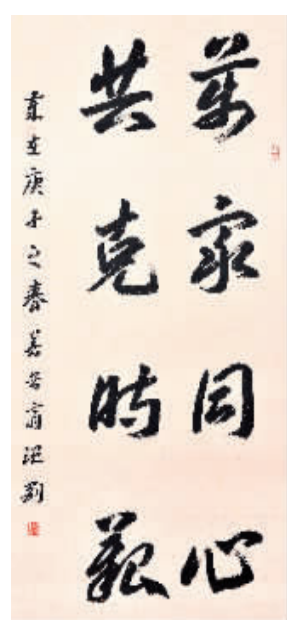 萬家同心
共克時艱
歲在庚子之春